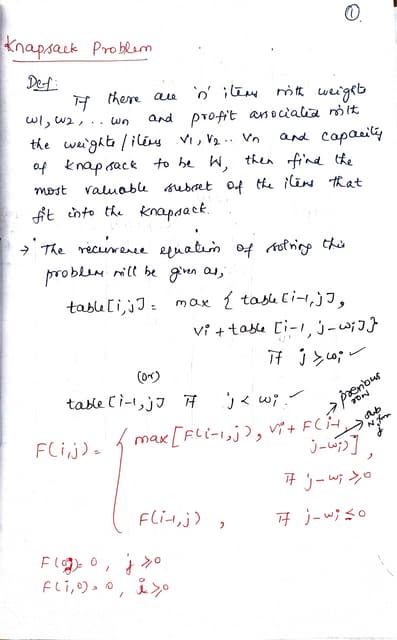 ①
Knapsack Problem
Def:
If there are 'n' items with weights
w1, w2, .. wn and profit associated with
the weights/items v1, v2.. vn and capacity
of knapsack to be W, then find the
most valuable subset of the items that
fit into the knapsack.
→ The recurrence equation of solving this
problem will be given as,
table[i,j] = max { table[i-1,j],
vi + table [i-1, j-wi]}
If j ≥ wi ✓
(or)
table[i-1,j] If j < wi ✓
previous
row
F(i,j) = { max[F(i-1,j), vi + F(i-1,
j-wi)],
sub
from
j
If j-wi ≥ 0
F(i-1,j) , If j-wi ≤ 0
F(0,j) = 0, j ≥ 0
F(i,0) = 0, i ≥ 0